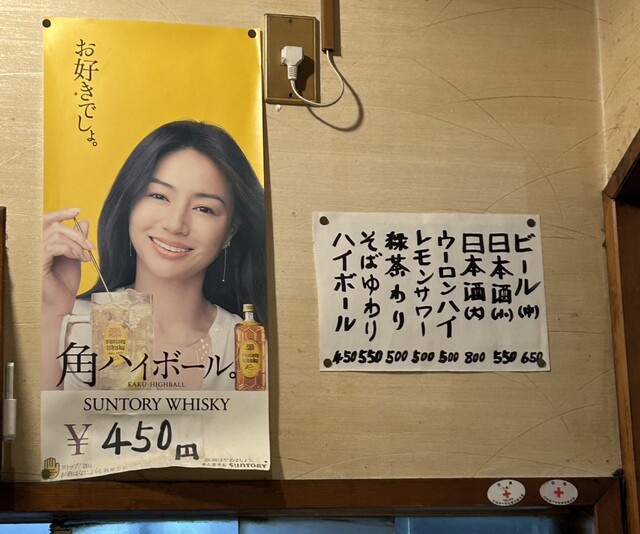 お好きでしょ。
角ハイボール。
KAKU-HIGHBALL
SUNTORY WHISKY
¥450円
ストップ!20歳
SUNTORY
ビール(中) 650
日本酒(小) 550
日本酒(大) 800
ウーロンハイ 500
レモンサワー 500
緑茶わり 500
そばゆわり 550
ハイボール 450